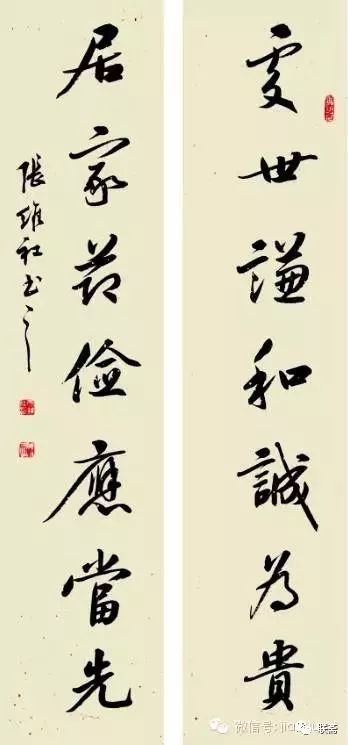 處世謙和誠為貴
居家節儉應當先
張維社书之
微信号: jia
联斋